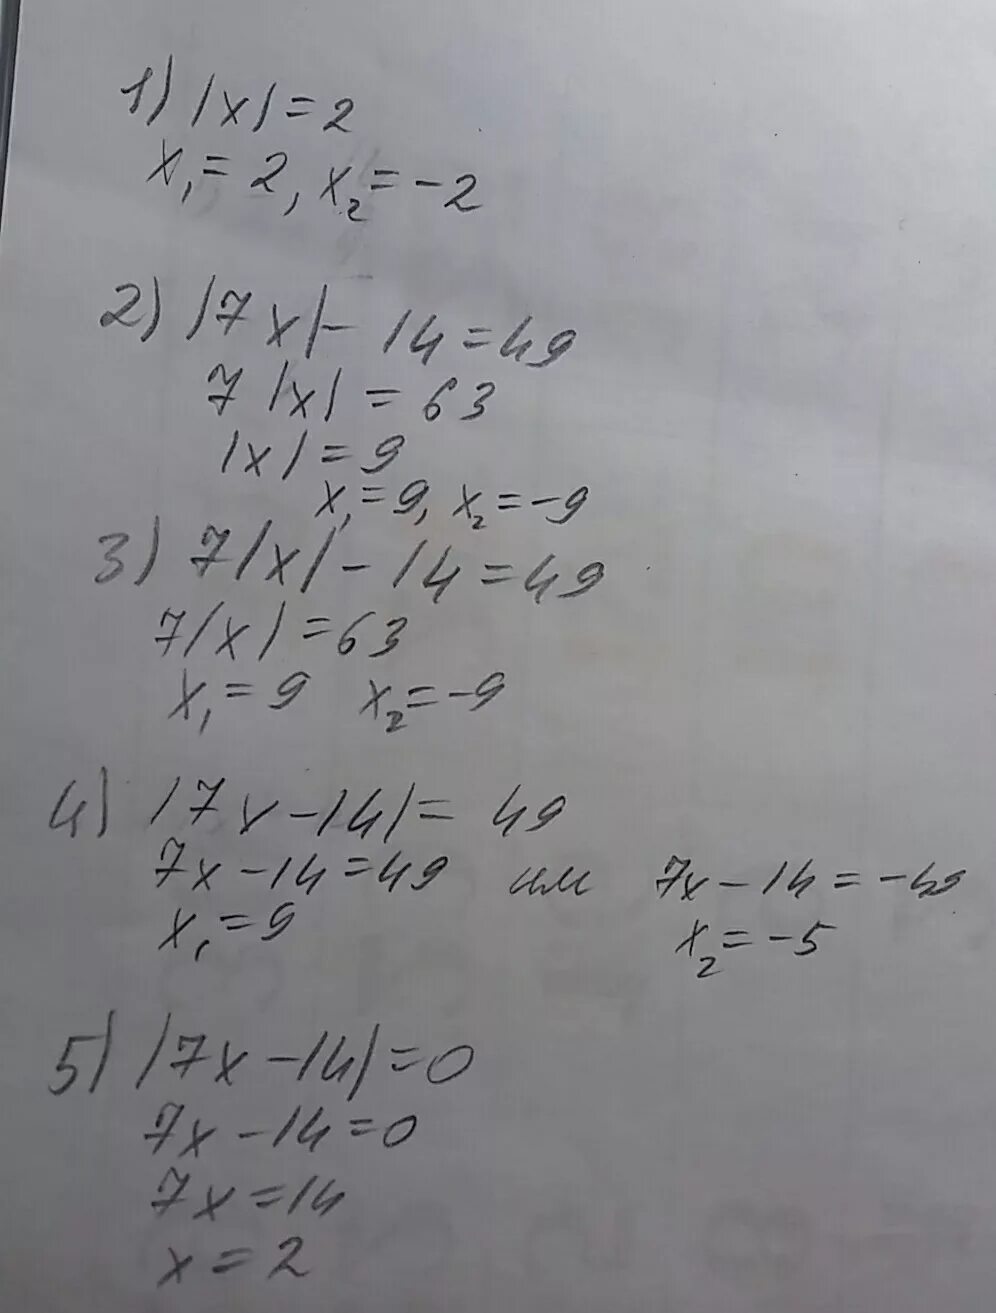 1) |x| = 2
x₁ = 2, x₂ = -2
2) |7x| - 14 = 49
7 |x| = 63
|x| = 9
x₁ = 9, x₂ = -9
3) 7|x| - 14 = 49
7|x| = 63
x₁ = 9 x₂ = -9
4) |7x - 14| = 49
7x - 14 = 49 или 7x - 14 = -49
x₁ = 9 x₂ = -5
5) |7x - 14| = 0
7x - 14 = 0
7x = 14
x = 2